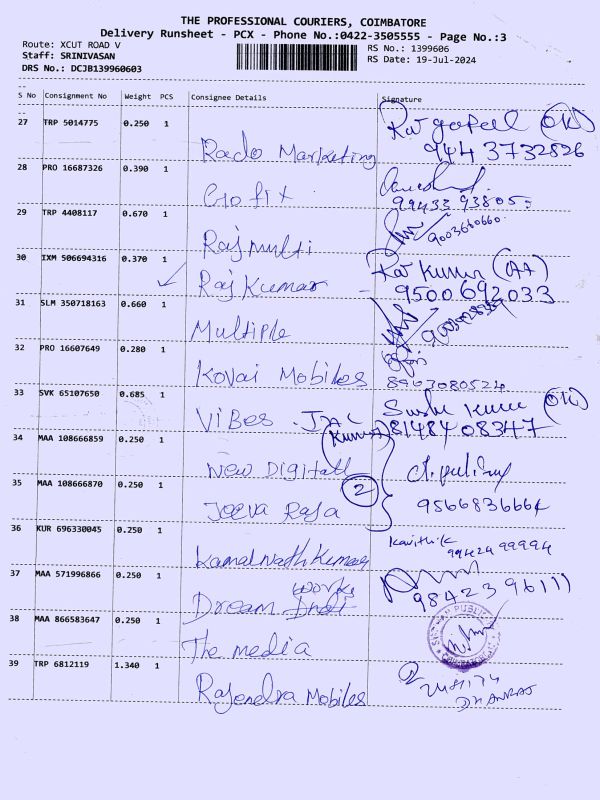 THE PROFESSIONAL COURIERS, COIMBATORE
Delivery Runsheet - PCX - Phone No.:0422-3505555 - Page No.:3
Route: XCUT ROAD V RS No.: 1399606
Staff: SRINIVASAN RS Date: 19-Jul-2024
DRS No.: DCJB139960603
S No Consignment No Weight PCS Consignee Details Signature
27 TRP 5014775 0.250 1 Rado Marketing Raj gopal
9443732826
28 PRO 16687326 0.390 1 Go fix
99433 93805
29 TRP 4408117 0.670 1 Raj multi
9003660660
30 IXM 506694316 0.370 1 Raj Kumar - Raj Kumar
9500692033
31 SLM 350718163 0.660 1 Multiple
32 PRO 16607649 0.280 1 Kovai Mobiles
8903080524
33 SVK 65107650 0.685 1 Vibes
8148408347
34 MAA 108666859 0.250 1 New Digitall
35 MAA 108666870 0.250 1 Jeeva Raja 2
9566836664
36 KUR 696330045 0.250 1 Kamalnath Kumar Kavithik
99424 99994
37 MAA 571996866 0.250 1 Dream works
98423 96111
38 MAA 866583647 0.250 1 The media
39 TRP 6812119 1.340 1 Rajendra Mobiles
DHANRAJ